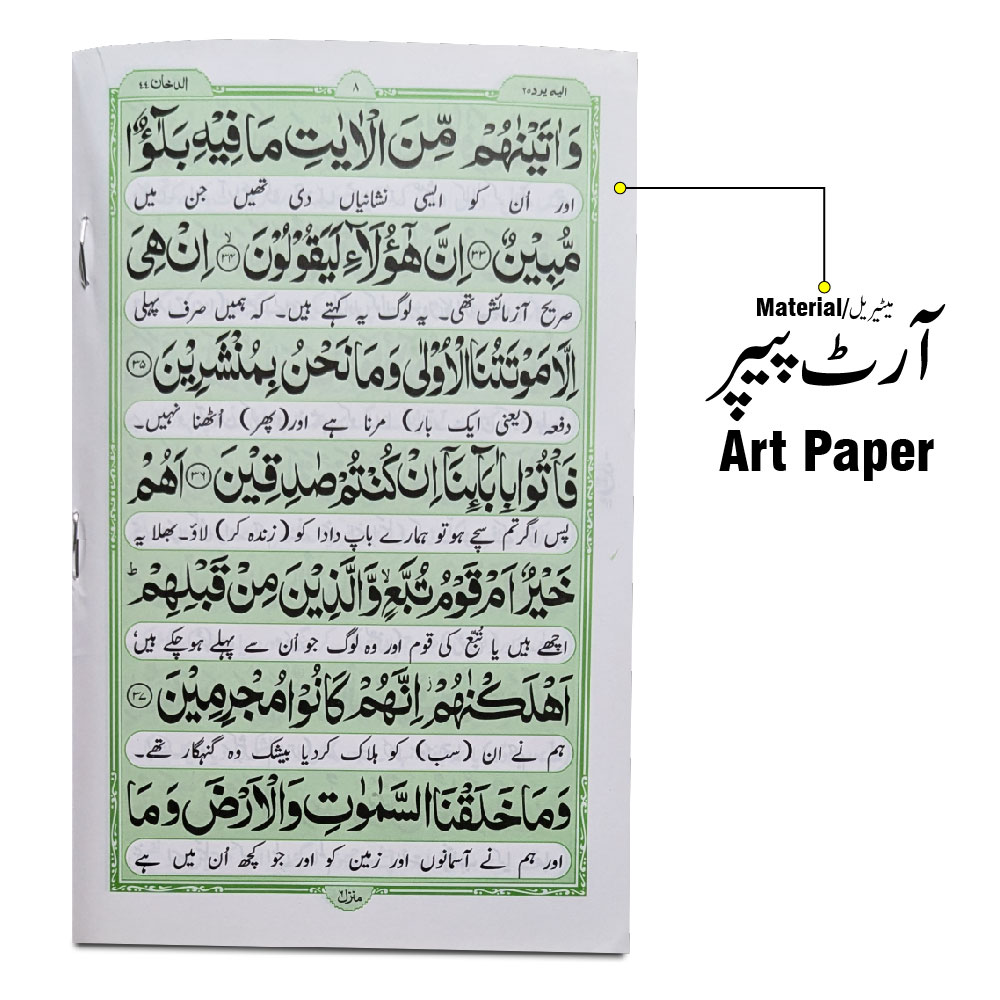 الیه یرد ۲۵
۸
الدخان ۴۴
وَاٰتَيْنٰهُمْ مِّنَ الْاٰيٰتِ مَا فِيْهِ بَلٰٓؤٌا
اور اُن کو ایسی نشانیاں دی تھیں جن میں
مُّبِيْنٌ ۝۳۳ اِنَّ هٰٓؤُلَآءِ لَيَقُوْلُوْنَ ۝۳۴ۙ اِنْ هِىَ
صریح آزمائش تھی۔ یہ لوگ یہ کہتے ہیں۔ کہ ہمیں صرف پہلی
اِلَّا مَوْتَتُنَا الْاُوْلٰى وَمَا نَحْنُ بِمُنْشَرِيْنَ ۝۳۵
دفعہ (یعنی ایک بار) مرنا ہے اور (پھر) اُٹھنا نہیں۔
فَاْتُوْا بِاٰبَآئِنَآ اِنْ كُنْتُمْ صٰدِقِيْنَ ۝۳۶ اَهُمْ
پس اگر تم سچے ہو تو ہمارے باپ دادا کو (زندہ کر) لاؤ۔ بھلا یہ
خَيْرٌ اَمْ قَوْمُ تُبَّعٍ ۙ وَّالَّذِيْنَ مِنْ قَبْلِهِمْ ؕ
اچھے ہیں یا تُبّع کی قوم اور وہ لوگ جو اُن سے پہلے ہوچکے ہیں
اَهْلَكْنٰهُمْ ز اِنَّهُمْ كَانُوْا مُجْرِمِيْنَ ۝۳۷
ہم نے ان (سب) کو ہلاک کردیا بیشک وہ گنہگار تھے۔
وَمَا خَلَقْنَا السَّمٰوٰتِ وَالْاَرْضَ وَمَا
اور ہم نے آسمانوں اور زمین کو اور جو کچھ اُن میں ہے
Material/میٹیریل
آرٹ پیپر
Art Paper